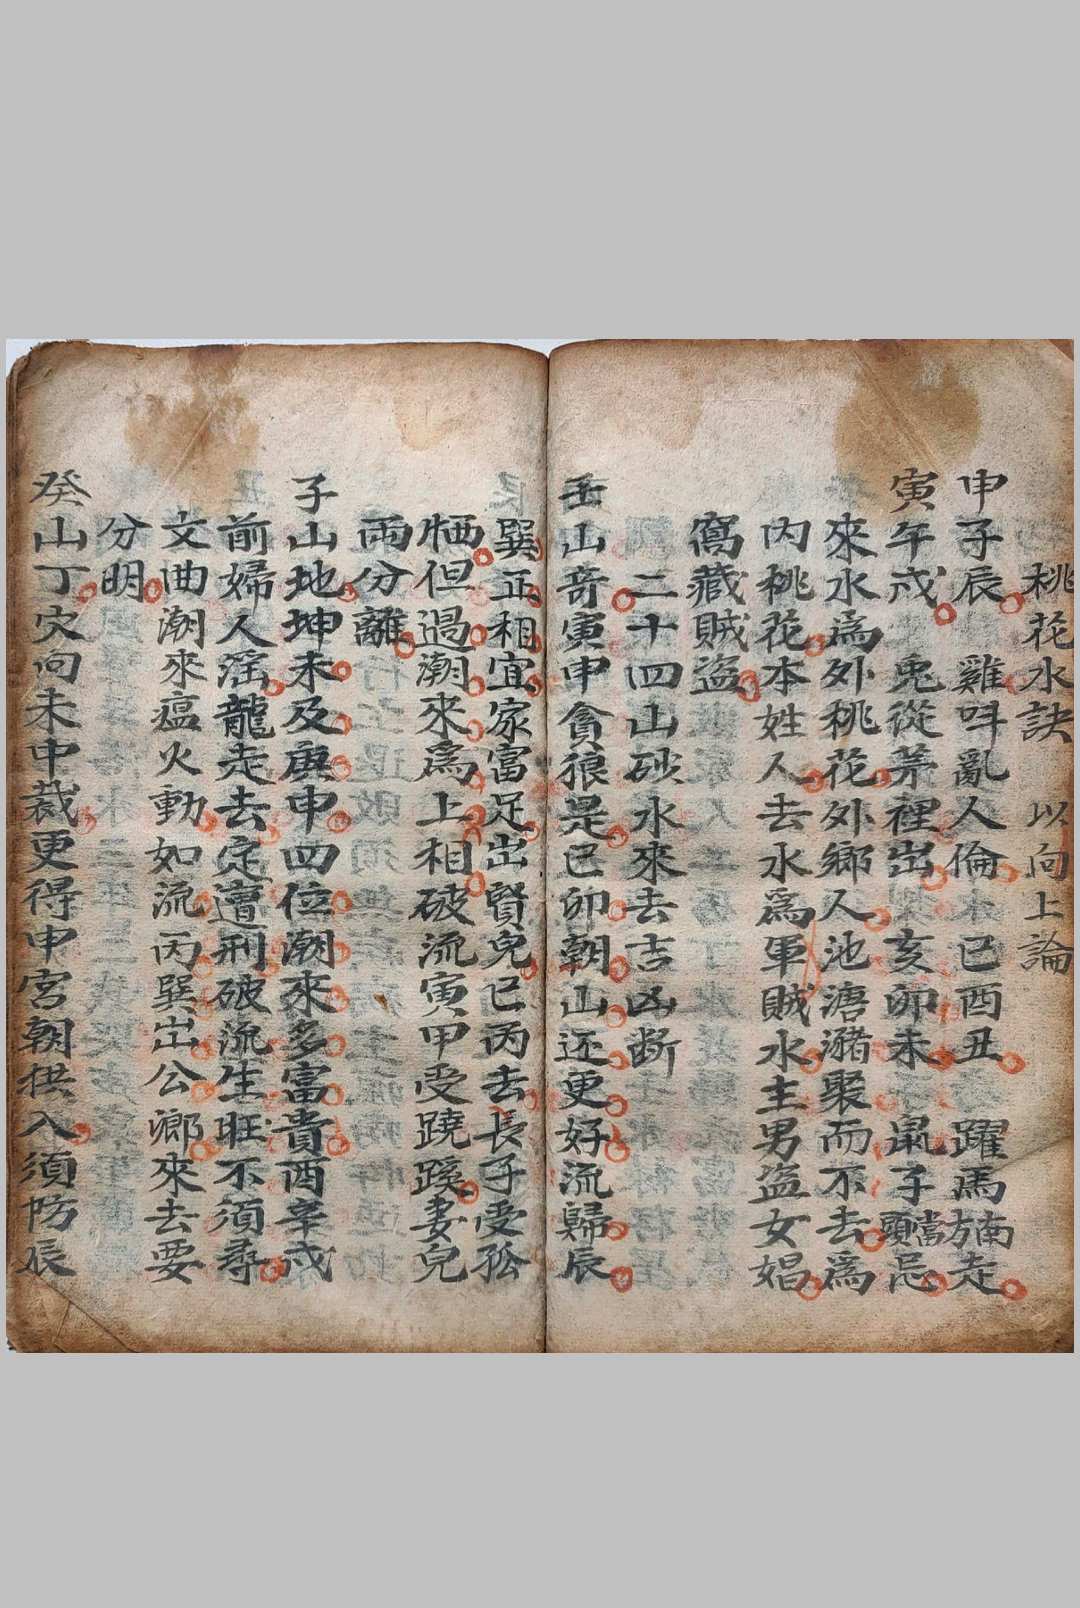 桃花水訣 以向上論
申子辰 雞呌亂人倫 巳酉丑 躍馬南方走
寅午戌 兎從茅裡出 亥卯未 鼠子當頭忌
來水爲外桃花外鄉人池溏瀦聚而不去爲
内桃花本姓人去水爲軍賊水主男盗女娼
窩藏賊盗
二十四山砂水來去吉凶断
壬山奇寅申貪狼是巳卯朝山还更好流歸辰
巽正相宜家富足出賢兒巳丙去長子受孤
恓但過潮來爲上相破流寅甲受蹺蹊妻兒
両分離
子山地坤未及庚申四位潮來多富貴酉辛戌
前婦人滛龍走去定遭刑破流生旺不須尋
文曲潮來瘟火動如流丙巽出公鄉來去要
分明
癸山丁穴向未中裁更得申宮朝拱入須防辰